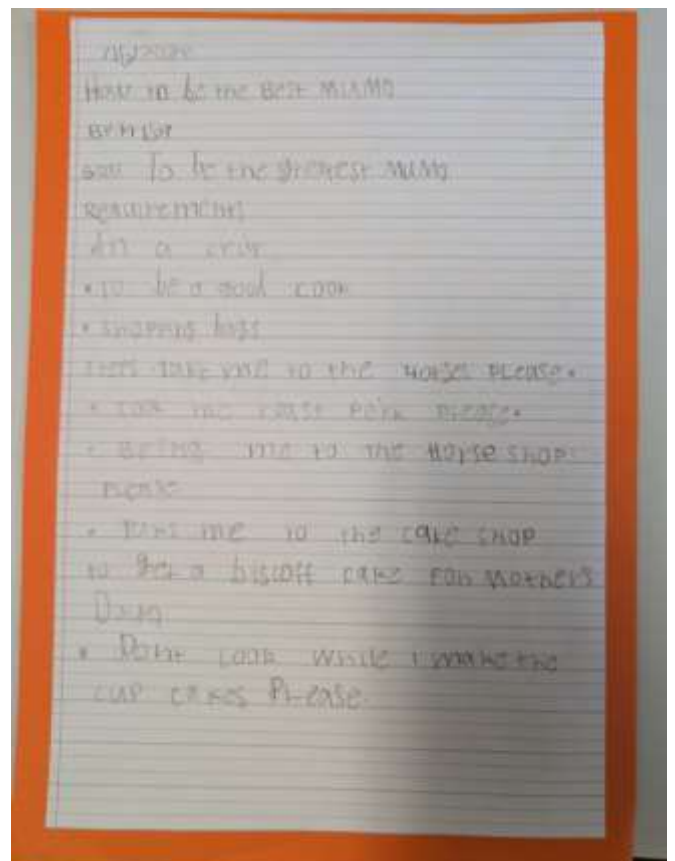 How to be the Best MUMMY
to be the greatest MUMMY
Requirements
a
• to be a good cook
• shopping bags
take me to the Horses PLease.
• me roast Pork Please.
• Bring me to the Horse shop
Please
• Take me to the cake shop
to get a biscoff cake FOR MotheRs
• Dont Look While I make the
CUP CaKes PLease.